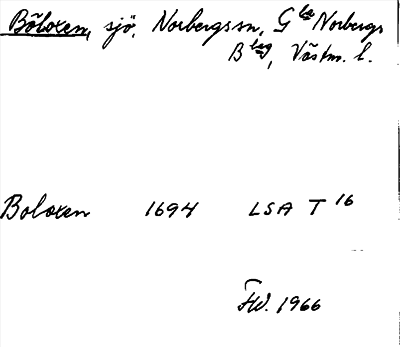 Böloxen, sjö, Norbergssn, Gla Norbergs
Blag, Västm. l.
Boloxen 1694 LSA T 16
HW. 1966